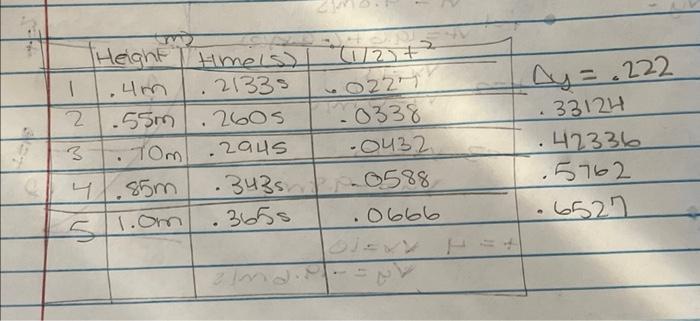 (m)
Height time(s) (1/2)t²
1 .4m .2133s .0227 Δy = .222
2 .55m .260s .0338 .33124
3 .70m .294s .0432 .42336
4 .85m .343s .0588 .5762
5 1.0m .365s .0666 .6527